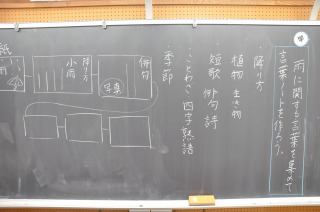 雨に関する言葉を集めて
言葉ノートを作ろう。
・降り方
植物 生き物
短歌 俳句 詩
・ことわざ 四字熟語
季節
俳句
写真
降り方
小雨
紙